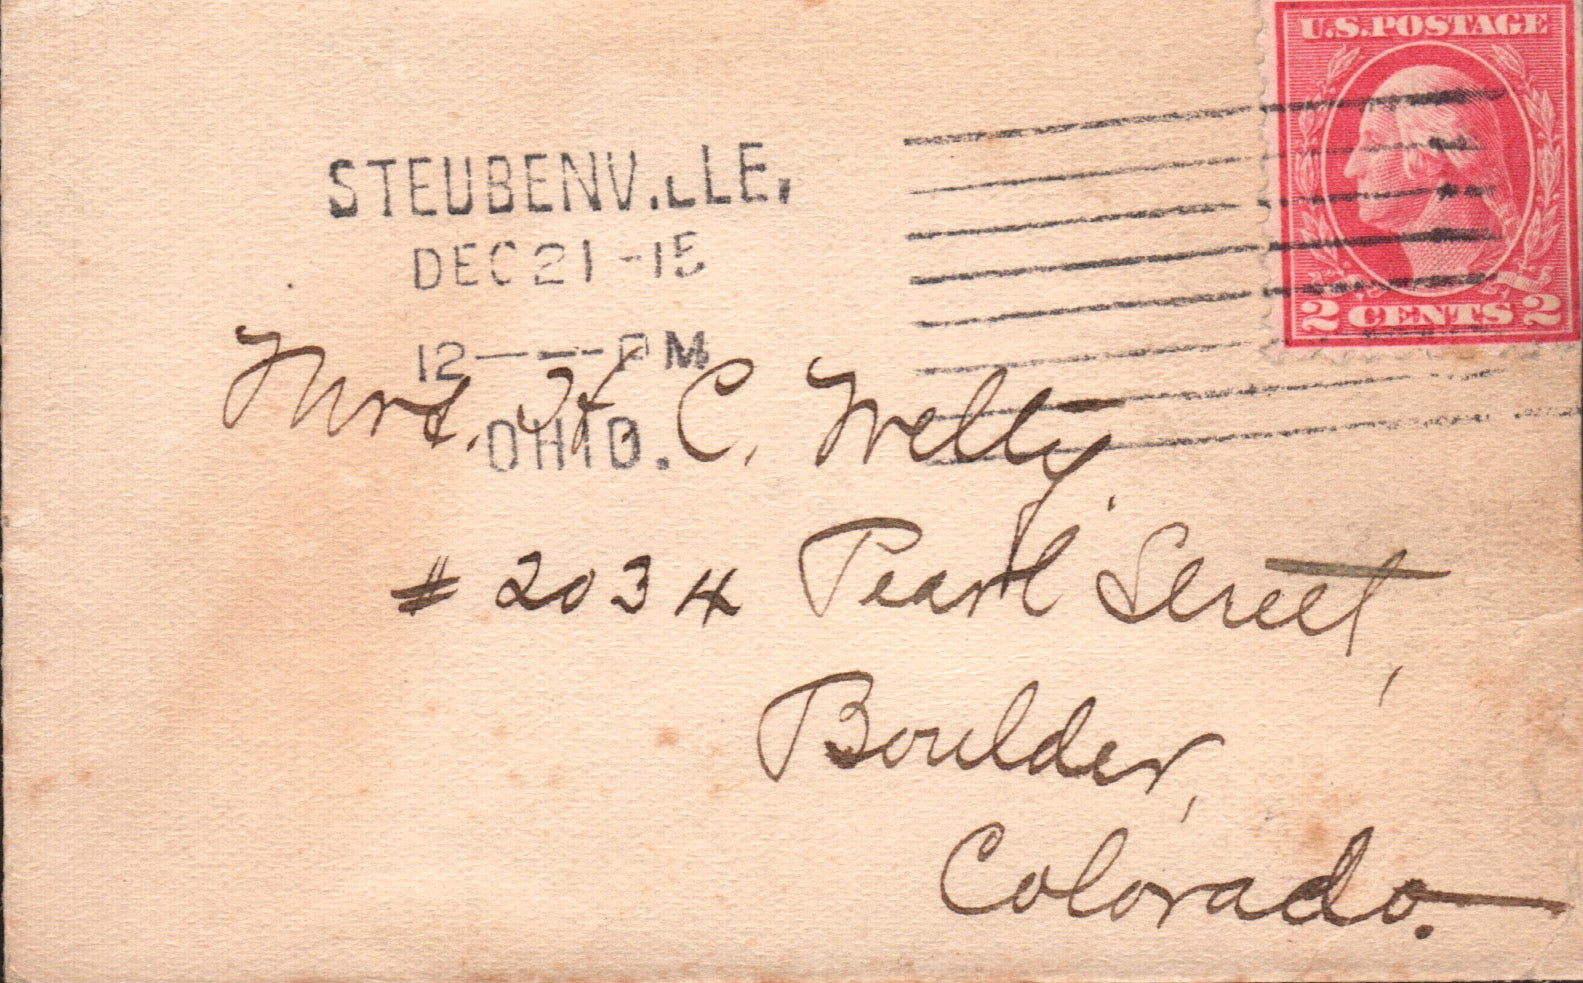 U.S.POSTAGE
STEUBENVILLE,
DEC 21 -15
12 - - - PM
OHIO.
2 CENTS 2
Mrs. H. C. Welty,
# 2034 Pearl Street,
Boulder,
Colorado.